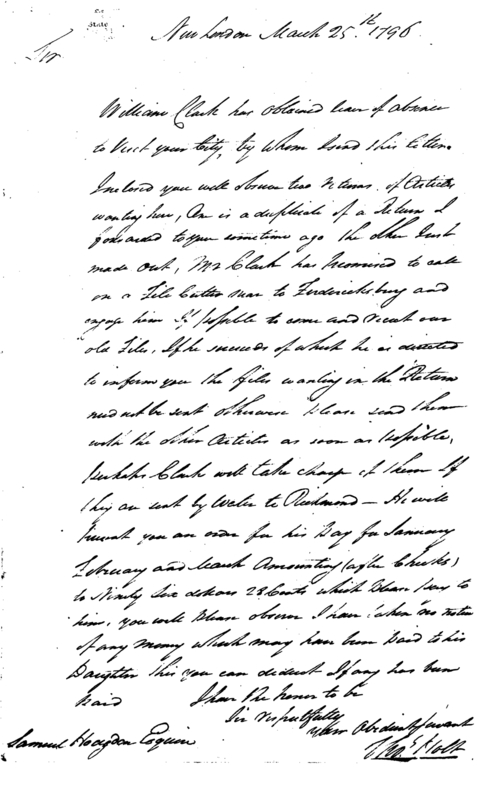 State
New London March 25.th 1796
Sir
William Clark has obtained leave of absence
to Visit your City, by Whom I send this letter.
Inclosed you will observe two returns of Articles
wanting here, One is a duplicate of a Return I
forwarded to you sometime ago the other Just
made out, Mr Clark has Promised to call
on a File Cutter near to Fredericksburg and
engage him If Possible to come and recut our
old Files, If he succeeds of which he is directed
to inform you the files wanting in the Return
need not be sent otherwise Please send them
with the other Articles as soon as Possible,
Perhaps Clark will take charge of them If
they are sent by Water to Richmond — He will
Present you an order for his Pay for January
February and March Amounting (after Checks)
to Ninety five dollars 28 Cents which Please Pay to
him, you will Please observe I have taken no notice
of any money which may have been Paid to his
Daughter this you can deduct If any has been
Paid I have the honor to be
Sir respectfully
your Obedient Servant
Samuel Hodgdon Esquire
Thos Holt